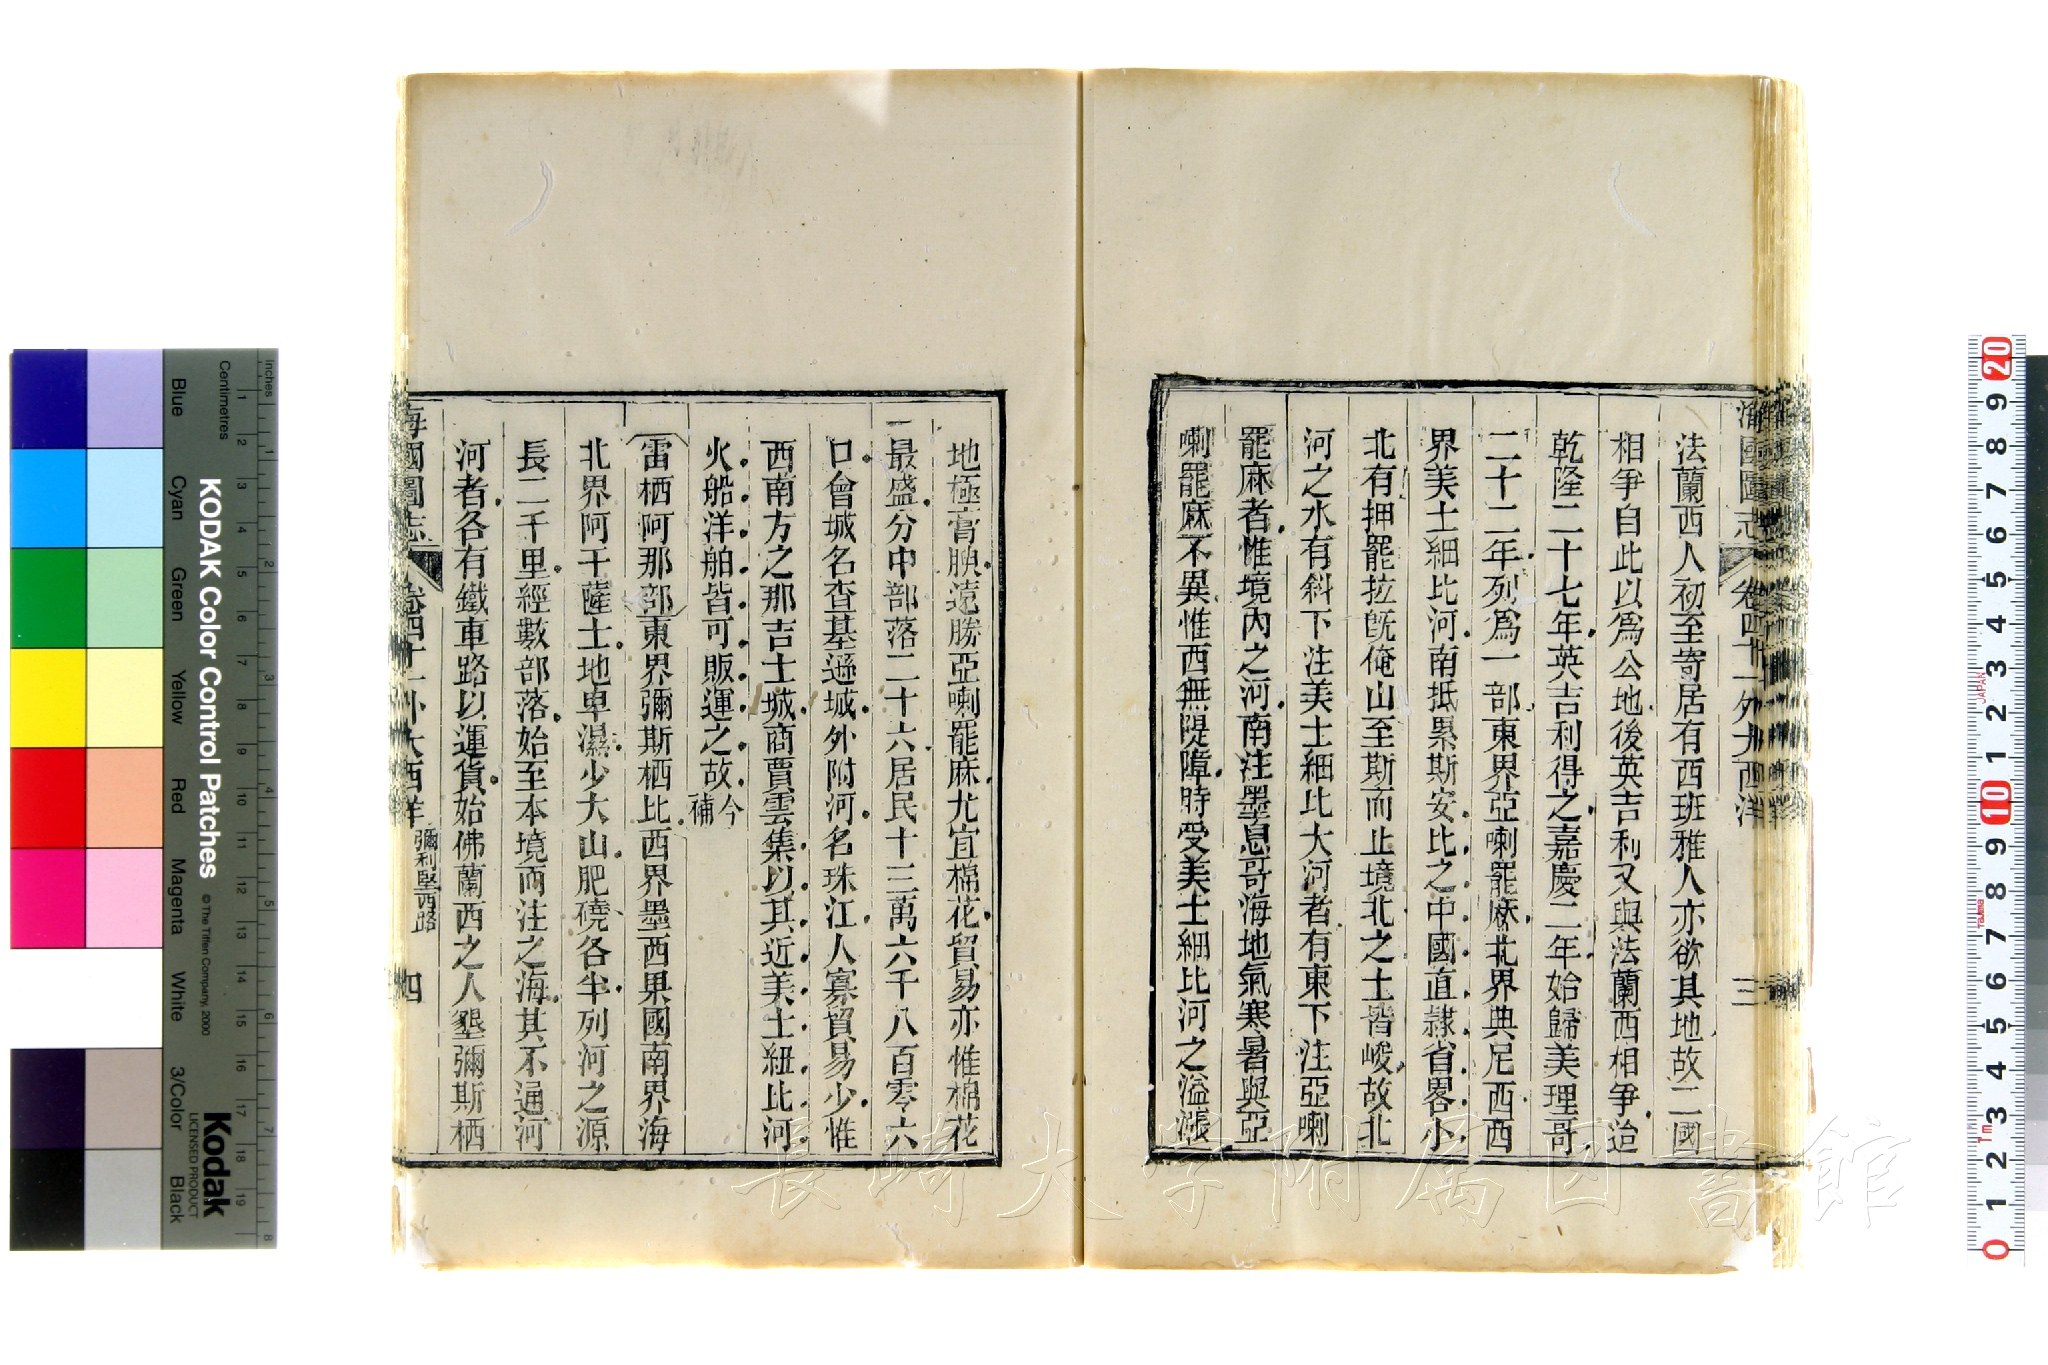 海國圖志 卷四十一 外大西洋 三
法蘭西人初至寄居有西班雅人亦欲其地故二國
相爭自此以爲公地後英吉利又與法蘭西相爭迨
乾隆二十七年英吉利得之嘉慶二年始歸美理哥
二十二年列爲一部東界亞喇罷麻北界典尼西西
界美士細比河南抵累斯安比之中國直隸省畧小
北有押罷拉旣俺山至斯而止境北之土皆峻故北
河之水有斜下注美士細比大河者有東下注亞喇
罷麻者惟境內之河南注墨息哥海地氣寒暑與亞
喇罷麻不異惟西無隄障時受美士細比河之溢漲
地極膏腴遠勝亞喇罷麻尤宜棉花貿易亦惟棉花
一最盛分中部落二十六居民十三萬六千八百零六
口會城名查基遜城外附河名珠江人寡貿易少惟
西南方之那吉士城商賈雲集以其近美士紐比河
火船洋舶皆可販運之故 今補
雷栖阿那部東界彌斯栖比西界墨西果國南界海
北界阿干薩土地卑濕少大山肥磽各半列河之源
長二千里經數部落始至本境而注之海其不通河
河者各有鐵車路以運貨始佛蘭西之人墾彌斯栖
海國圖志 卷四十一 外大西洋 彌利堅西路 四
長崎大学附属図書館
KODAK Color Control Patches
© The Tiffen Company, 2000
Kodak
LICENSED PRODUCT
Inches
Centimetres
Blue Cyan Green Yellow Red Magenta White 3/Color Black
1 2 3 4 5 6 7 8
1 2 3 4 5 6 7 8 9 10 11 12 13 14 15 16 17 18 19
20 9 8 7 6 5 4 3 2 1 10 9 8 7 6 5 4 3 2 1 0
JAPAN
Tajima